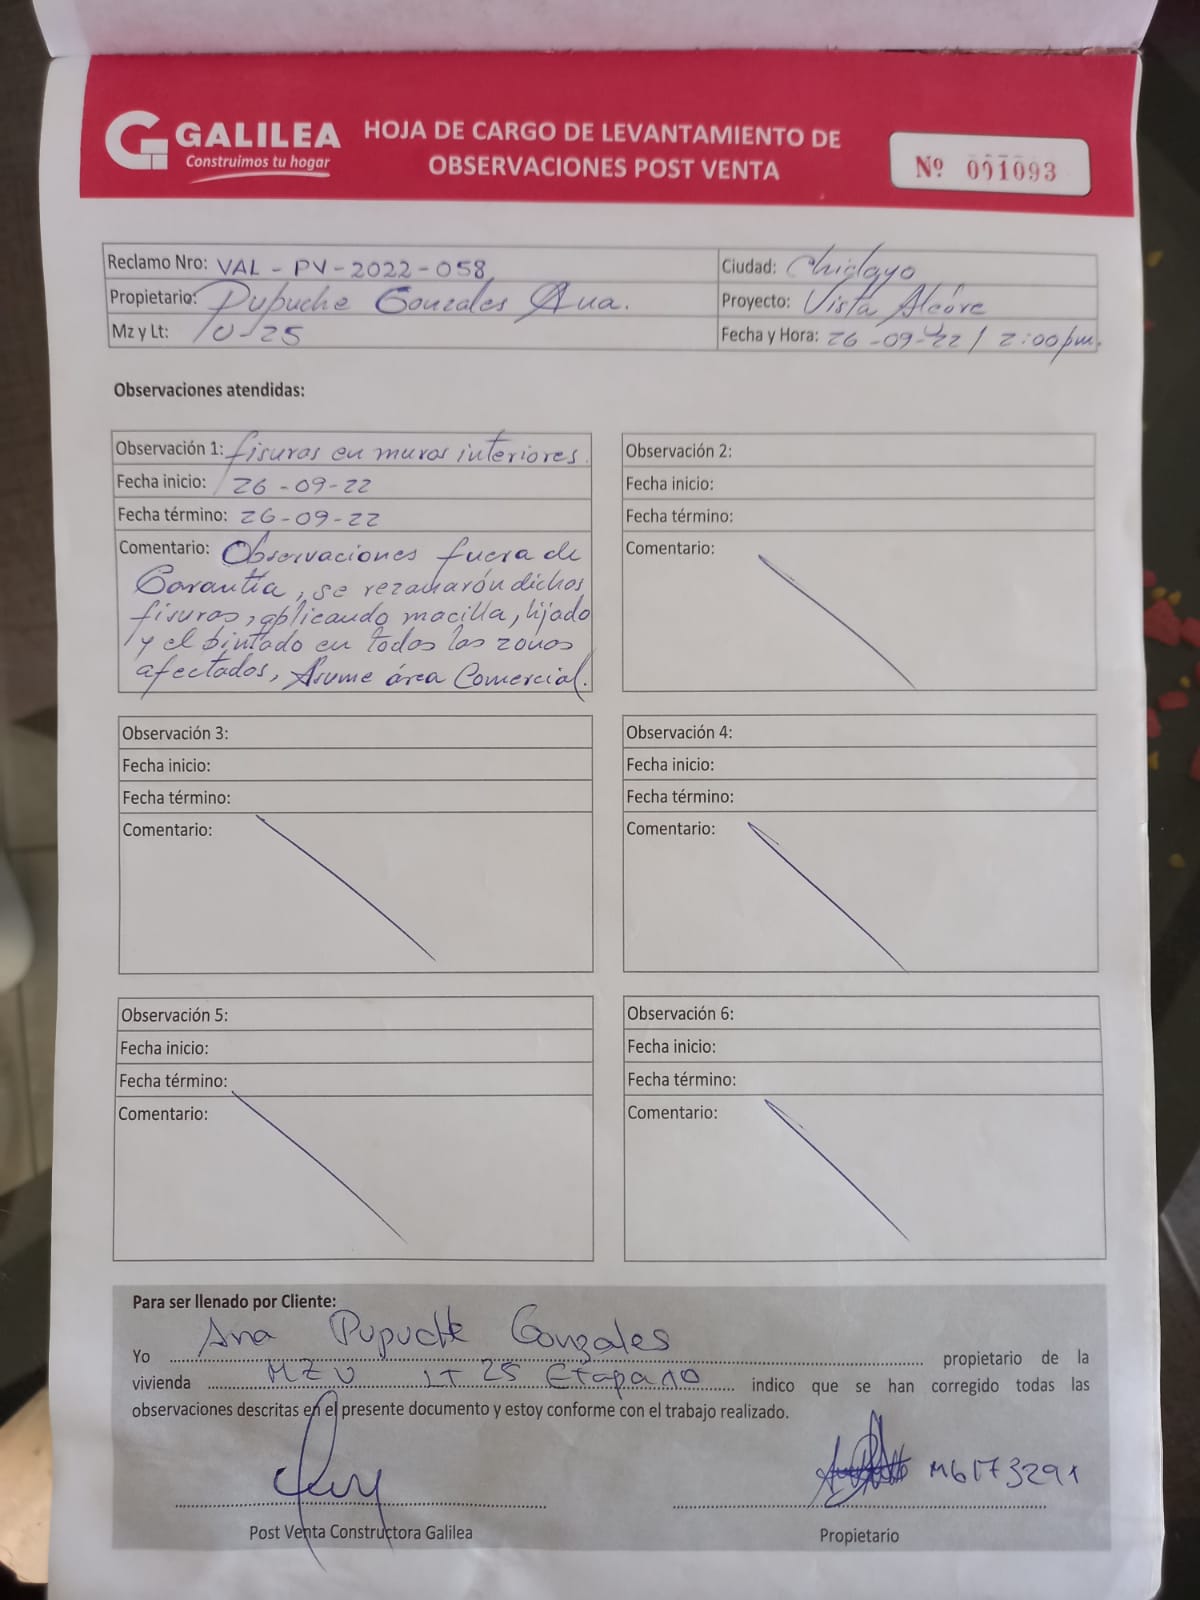 GALILEA
Construimos tu hogar
HOJA DE CARGO DE LEVANTAMIENTO DE
OBSERVACIONES POST VENTA
Nº 001093
Reclamo Nro: VAL - PV - 2022 - 058
Ciudad: Chiclayo
Propietario: Pupuche Gonzales Ana.
Proyecto: Vista Alegre
Mz y Lt: U-25
Fecha y Hora: 26-09-22 / 2:00pm.
Observaciones atendidas:
Observación 1: fisuras en muros interiores.
Fecha inicio: 26-09-22
Fecha término: 26-09-22
Comentario: Observaciones fuera de
Garantía, se rezanarón dichos
fisuras, aplicando macilla, lijado
y el pintado en todas las zonas
afectados, Asume área Comercial.
Observación 2:
Fecha inicio:
Fecha término:
Comentario:
Observación 3:
Fecha inicio:
Fecha término:
Comentario:
Observación 4:
Fecha inicio:
Fecha término:
Comentario:
Observación 5:
Fecha inicio:
Fecha término:
Comentario:
Observación 6:
Fecha inicio:
Fecha término:
Comentario:
Para ser llenado por Cliente:
Yo Ana Pupuche Gonzales propietario de la
vivienda MZ U LT 25 Etapa indico que se han corregido todas las
observaciones descritas en el presente documento y estoy conforme con el trabajo realizado.
Post Venta Constructora Galilea
Propietario